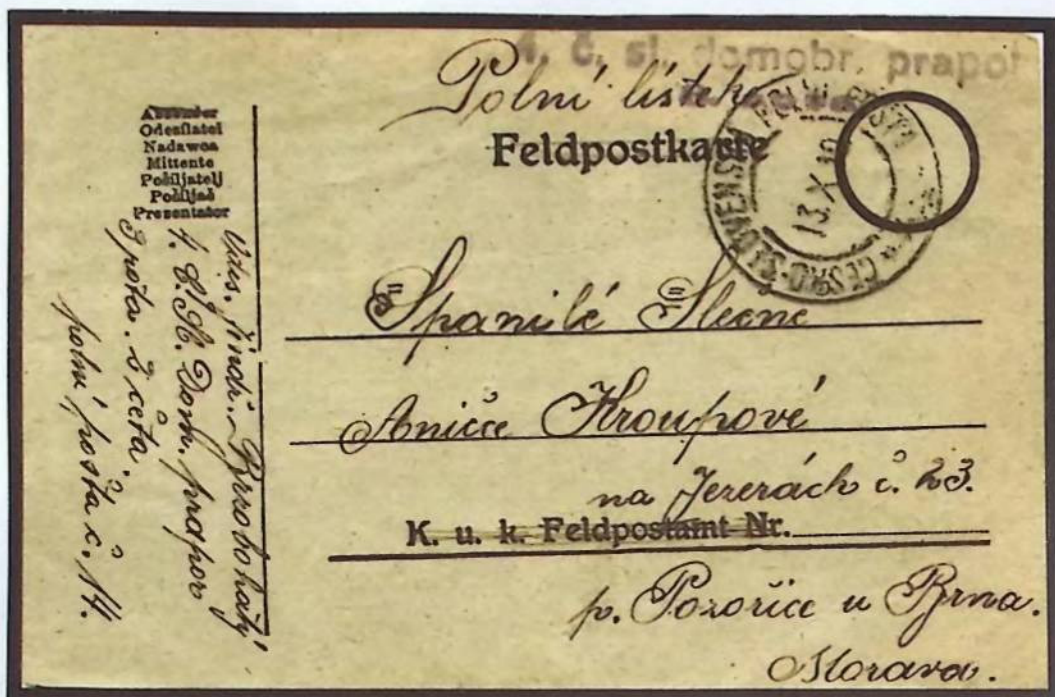 4. č. sl. domobr. prapor
Polní lístek
Feldpostkarte
ČESKO-SLOVENSKÁ POLNÍ POŠTA
13.X.19
Absender
Odesílatel
Nadawca
Mittente
Pošiljatelj
Pošiljač
Presentator
Jindř.
4. Č. Sl. Dom. prapor
3 pota. 2 četa.
polní pošta č. 14.
Spanilé Slečně
Aničce Kroupové
na Jezerách č. 23.
K. u. k. Feldpostamt Nr.
p. Pozořice u Brna.
Morava.